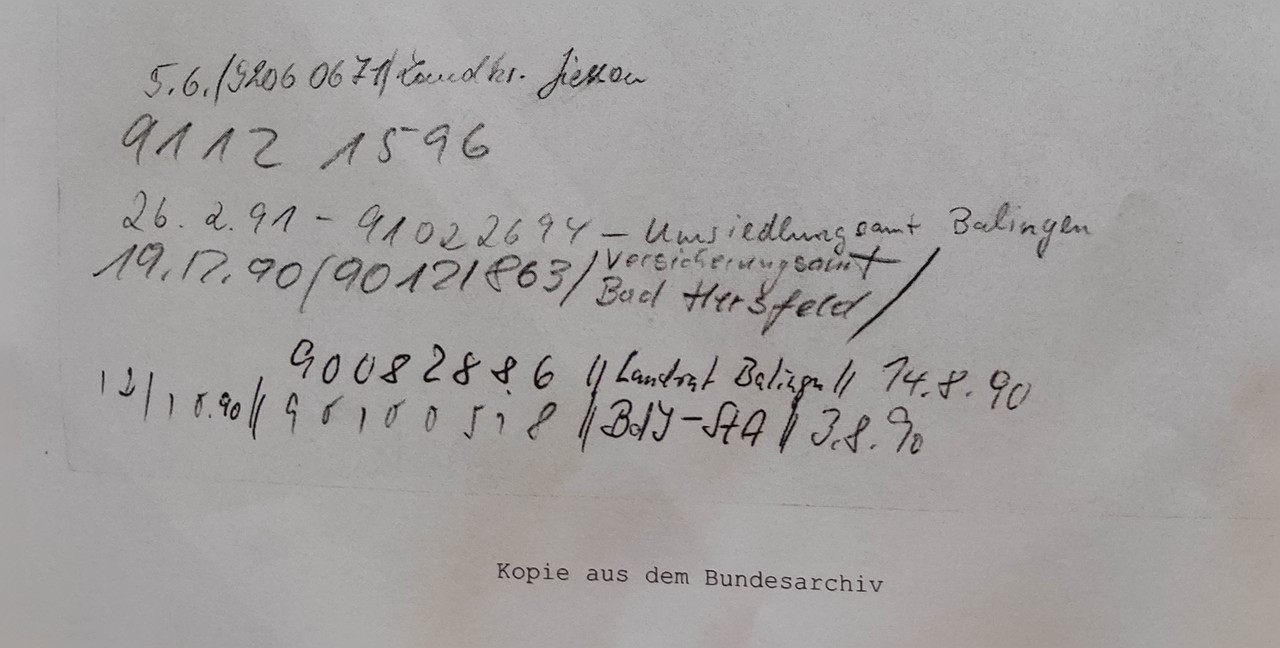 5.6./9206 0671/Landkr. Giessen
9112 1596
26.2.91 - 91022694 - Umsiedlungsamt Balingen
19.12.90/90121863/Versicherungsamt
Bad Hersfeld/
90082886 // Landrat Balingen // 14.8.90
12/10.90// 90100518 // BdJ-StA // 3.8.90
Kopie aus dem Bundesarchiv